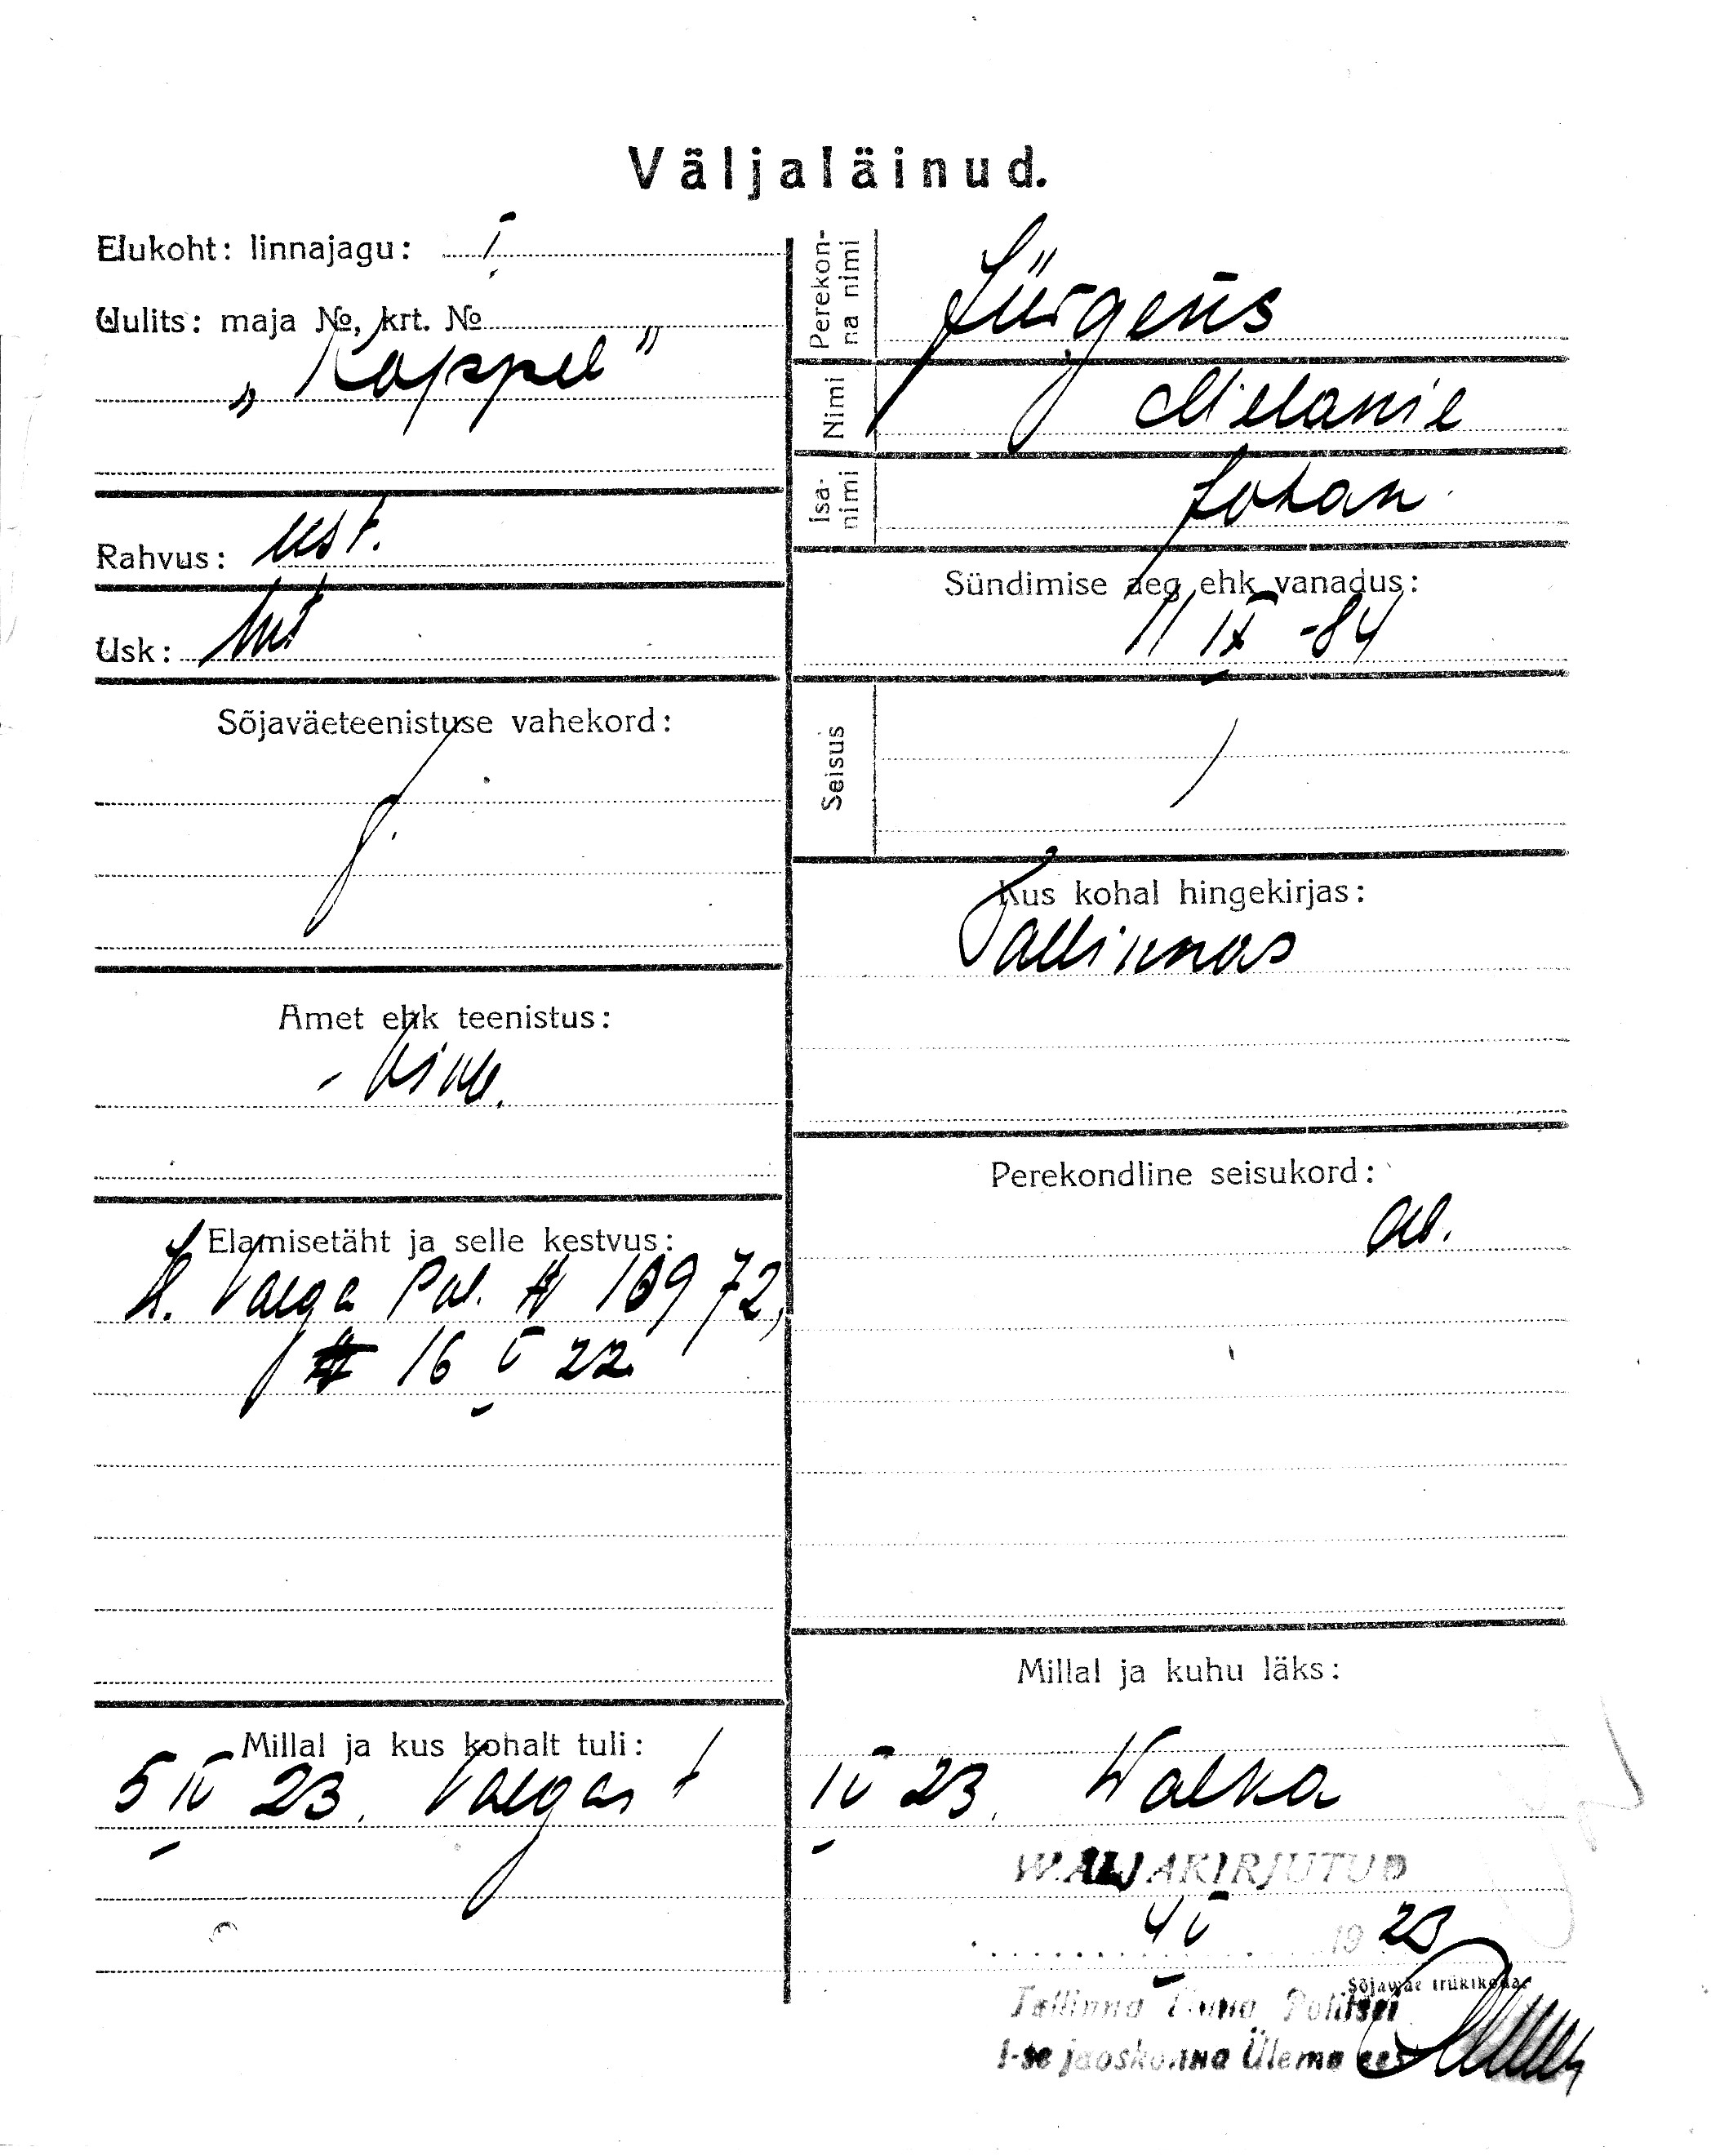 Väljaläinud.
Elukoht: linnajagu: I
Uulits: maja №, krt. №
„Koppel"
Rahvus: est.
Usk: lut
Sõjaväeteenistuse vahekord:
Amet ehk teenistus:
Elamisetäht ja selle kestvus:
Valga Pol. № 16972,
16 V 22
Millal ja kus kohalt tuli:
5 IV 23. Valgast
Perekonna nimi Jürgens
Nimi Melanie
Isanimi Johan
Sündimise aeg ehk vanadus:
11 IX -84
Seisus
Kus kohal hingekirjas:
Tallinnas
Perekondline seisukord:
ab.
Millal ja kuhu läks:
IV 23. Walka
WÄLJAKIRJUTUD
4 V 1923
Sõjawäe trükikoda.
Tallinna Linna Politsei
I-se jaoskonna Ülema eest